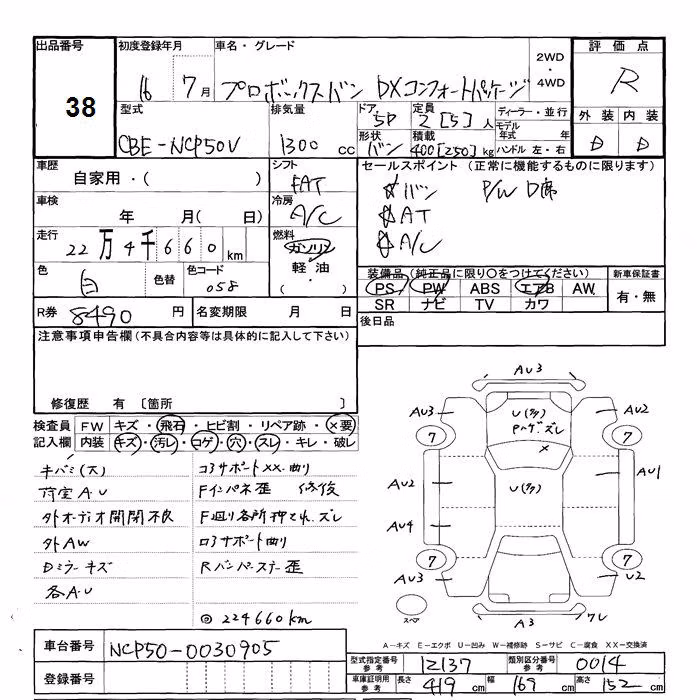 出品番号 初度登録年月 車名・グレード 2WD・4WD 評価点
38
16 7月 プロボックスバン DXコンフォートパッケージ R
型式 排気量 ドア 定員 ディーラー・並行 外装 内装
CBE-NCP50V 1300cc 5D 2[5]人 モデル 年式 年 D D
形状 積載 ハンドル 左・右
バン 400[250]kg
車歴 シフト セールスポイント(正常に機能するものに限ります)
自家用・( ) FAT バン P/W D席
車検 冷房 AT
年 月( 日) A/C A/C
走行 燃料
22万4千660km ガソリン
色 色替 色コード 軽油・
白 058 ( )
装備品(純正品に限り○をつけてください) 新車保証書
PS PW ABS エアB AW 有・無
SR ナビ TV カワ
R券 8490円 名変期限 月 日 後日品
注意事項申告欄(不具合内容等は具体的に記入して下さい)
修復歴 有 〔箇所 〕
検査員 FW キズ・飛石・ヒビ割・リペア跡・×要
記入欄 内装 キズ・汚レ・コゲ・穴・スレ・キレ・破レ
キバミ(大) コアサポートXX.曲り
荷室AU Fインパネ歪 修復
外オーディオ開閉不良 F廻り各所押され.ズレ
外AW ロアサポート曲り
Dミラーキズ Rバンパーステー歪
各AU
◎224660km
AU3
AU3 AU2
7 7
U(多)
Pハゲズレ
X
AU2 U(多) AU1
AU4
7 7
AU3 U2
スペア A3 ワレ
A-キズ E-エクボ U-凹み W-補修跡 S-サビ C-腐食 XX-交換済
車台番号 NCP50-0030905
登録番号
型式指定番号 参考 12137 類別区分番号 参考 0014
車庫証明用 参考 長さ 419cm 幅 169cm 高さ 152cm